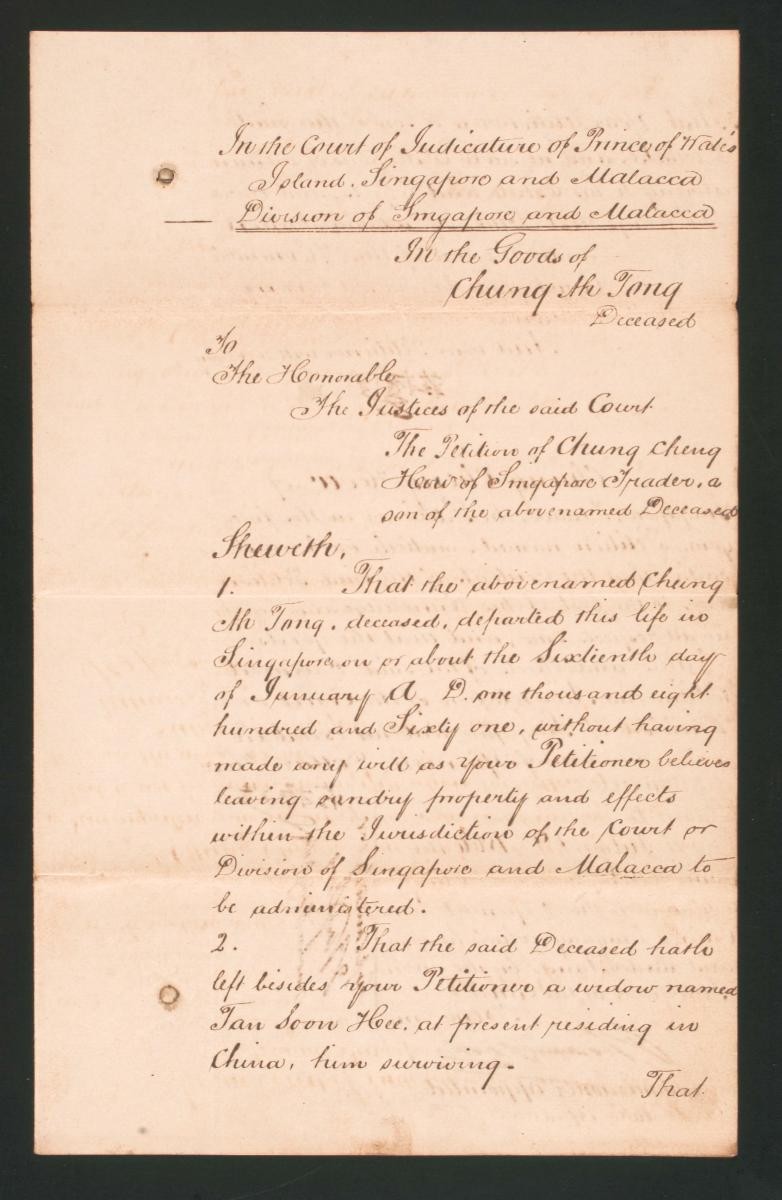 In the Court of Judicature of Prince of Wales
Island. Singapore and Malacca
Division of Singapore and Malacca
In the Goods of
Chung Ah Tong
Deceased
To
The Honorable
The Justices of the said Court
The Petition of Chung Cheng
How of Singapore Trader, a
son of the abovenamed Deceased
Sheweth,
1. That the abovenamed Chung
Ah Tong, deceased, departed this life in
Singapore on or about the Sixteenth day
of January A. D. one thousand eight
hundred and Sixty one, without having
made any will as Your Petitioner believes
leaving sundry property and effects
within the Jurisdiction of the Court or
Division of Singapore and Malacca to
be administered.
2. That the said Deceased hath
left besides your Petitioner a widow named
Tan Soon Hee, at present residing in
China, him surviving.
That